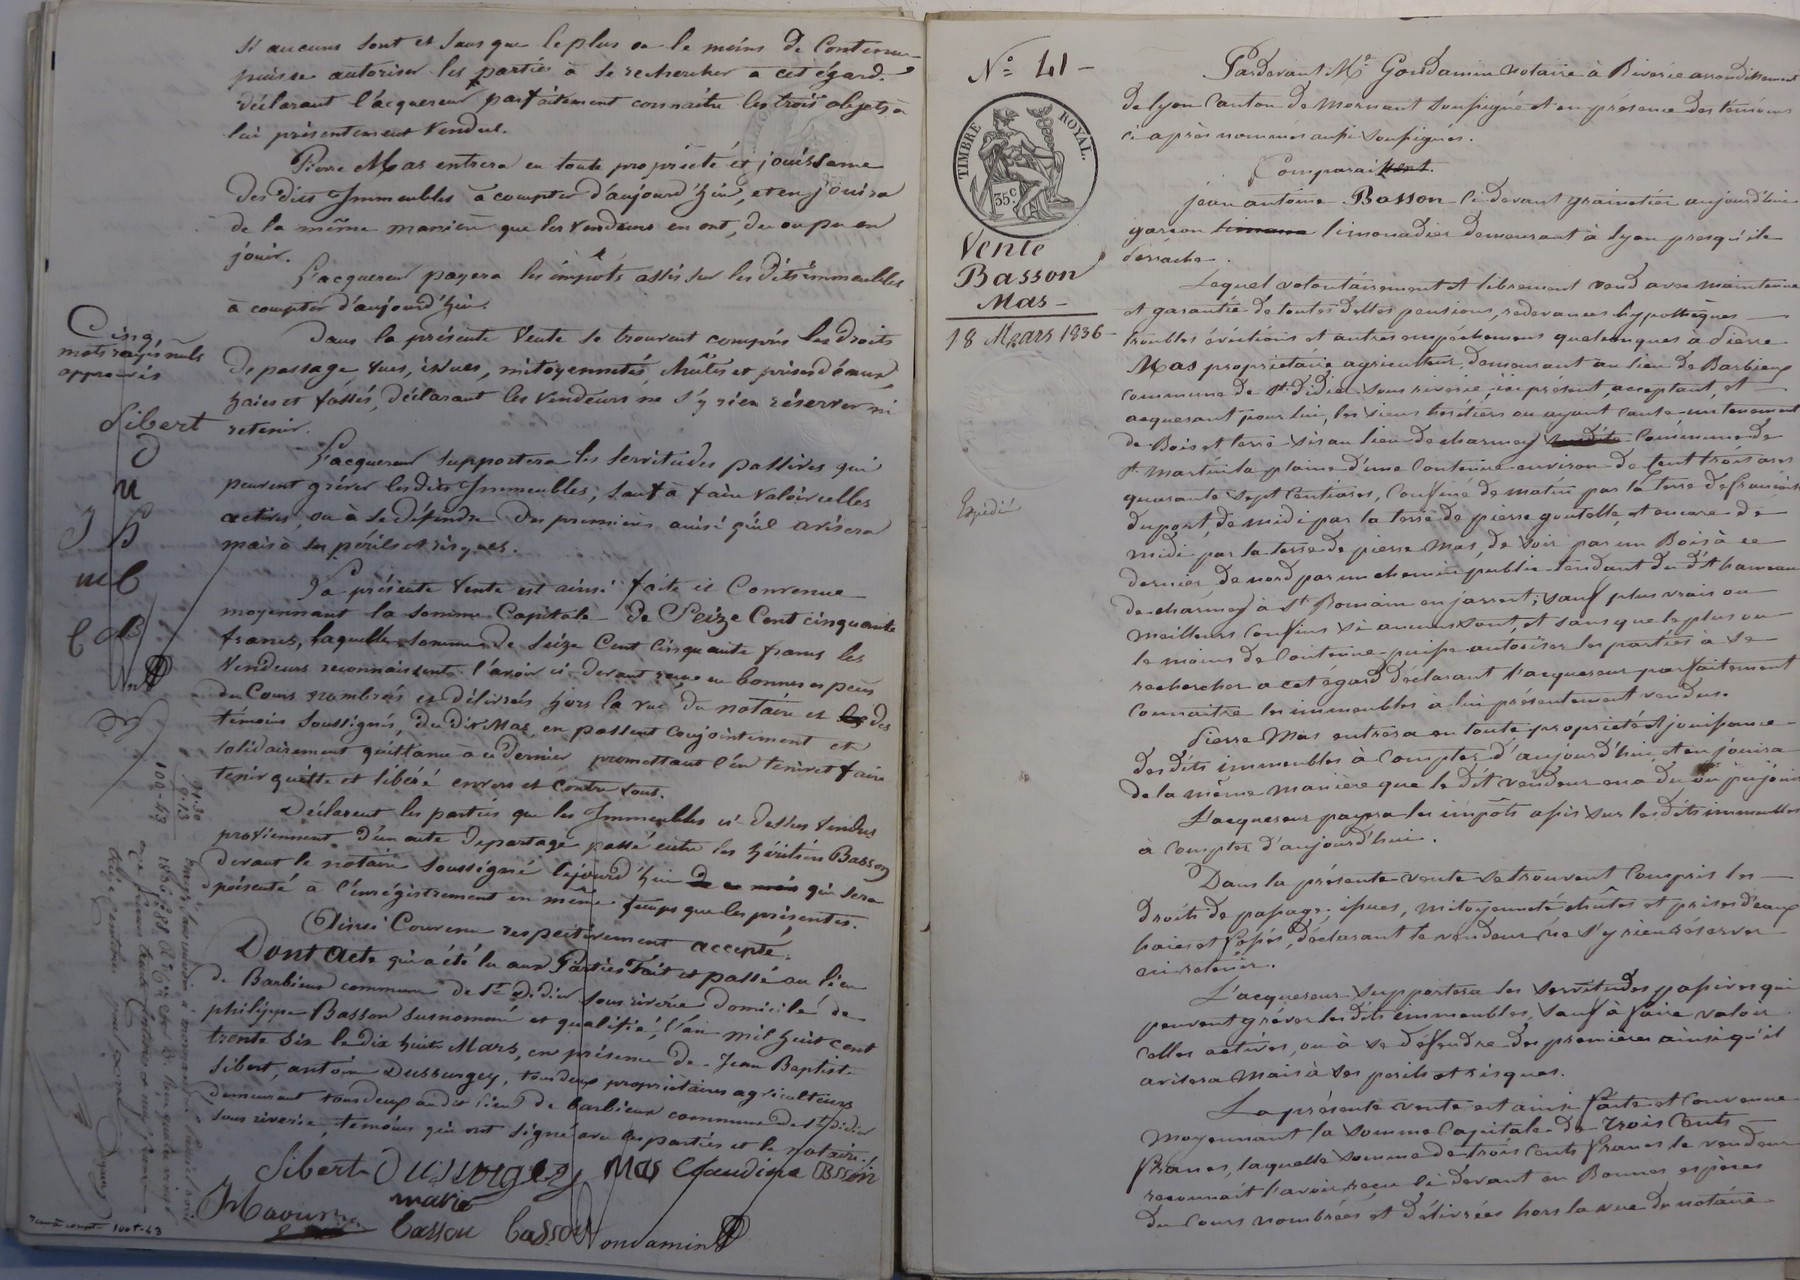 si aucuns sont et sans que le plus ou le moins de Contenue
puisse autoriser les parties à se rechercher a cet égard.
déclarant l'acquereur parfaitement connaitre les trois objets a
lui présentement Vendus.
Pierre Mas entrera en toute propriété et jouissance
des dits Immeubles à compter d'aujourd'hui, et en jouira
de la même manière que les Vendeurs en ont, du ou pu en
jouir.
L'acquereur payera les impots assis sur les dits immeubles
à compter d'aujourd'hui.
Dans la présente Vente se trouvent compris les droits
de passage vues, issues, mitoyennetés, chûtes et prises d'eaux,
haies et fossés, déclarant les Vendeurs ne s'y rien réserver ni
retenir.
L'acquereur supportera les servitudes passives qui
peuvent gréver les dits Immeubles, sauf à faire valoir celles
actives, ou à se défendre des premières ainsi qu'il avisera
mais à ses périls et risques.
La présente Vente est ainsi faite et Convenue
moyennant la somme Capitale de Seize Cent cinquante
francs, laquelle somme de Seize Cent Cinquante francs les
Vendeurs reconnaissent l'avoir ci devant reçue en bonnes espèces
du Cours nombrées et délivrées hors la vue du notaire et les des
témoins soussignés, du dit Mas, en passent conjointement et
solidairement quittance a ce dernier promettant l'en tenir et faire
tenir quitte et libéré envers et contre tous.
Déclarent les parties que les Immeubles ci dessus Vendus
proviennent d'un acte de partage passé entre les héritiers Basson
devant le notaire soussigné cejourd'hui de ce mois qui sera
présenté à l'enrégistrement en même temps que les présentes.
Ainsi Convenu respectivement accepté.
Dont Acte qui a été lu aux Parties Fait et passé au lieu
de Barbieux commune de St Didier sous riverie domicile de
philippe Basson susnommé et qualifié, l'an mil huit cent
trente six le dix huit Mars, en présence de Jean Baptiste
Sibert, antoine Dussurgey, tous deux propriétaires agriculteurs
demeurant tous deux au dit lieu de barbieux commune de St Didier
sous riverie, témoins qui ont signé avec les parties et le notaire.
Sibert Dussurgey Mas Claudine Basson
marie
basson basson Gondamin
Cinq
mots rayés nuls
approuvés
Sibert
D
N° 41 -
TIMBRE ROYAL.
35 c.
Vente
Basson
Mas -
18 Mars 1836 -
Expédié
Pardevant Me Gondamin notaire à Riverie arrondissement
de lyon Canton de Mornant soussigné et en présence des témoins
ci après nommés aussi soussignés.
Comparaissent.
jean antoine Basson ci devant grainetier aujourd'hui
garçon limona limonadier demeurant à Lyon presqu'ile
Perrache.
Lequel volontairement et librement vend avec maintenue
et garantie de toutes dettes pensions, redevances hypothèques
troubles évictions et autres empêchemens quelconques à Pierre
Mas propriétaire agriculteur demeurant au lieu de Barbieux
commune de St Didier sous riverie, ici présent, acceptant, et
acquerant pour lui, les siens héritiers ou ayant cause un tenement
de Bois et terre sis au lieu de charmay Commune de
St Martin la plaine d'une Contenue environ de Cent trois ares
quarante sept Centiares, Confiné de matin par la terre de françois
dupont, de midi par la terre de pierre goutelle, et encore de
midi par la terre de pierre Mas, de soir par un Bois à ce
dernier de nord par un chemin public tendant du dit hameau
de charmay à St Romain en jarrest; sauf plus vrais ou
meilleurs Confins si aucuns sont et sans que le plus ou
le moins de Contenue puisse autoriser les parties à se
rechercher a cet égard déclarant l'acquereur parfaitement
Connaitre les immeubles à lui présentement vendus.
Pierre Mas entrera en toute propriété et jouissance
des dits immeubles à Compter d'aujourd'hui, et en jouira
de la même manière que le dit vendeur en a du, ou pu jouir
L'acquereur payera les impôts assis sur les dits immeubles
à Compter d'aujourd'hui.
Dans la présente vente se trouvent Compris les
droits de passage, issues, mitoyenneté, chûtes et prises d'eaux
haies et fossés, déclarant le vendeur ne s'y rien réserver
ni retenir.
L'acquereur supportera les servitudes passives qui
peuvent gréver les dits immeubles, sauf à faire valoir
Celles actives, ou à se défendre des premières ainsi qu'il
avisera Mais à ses perils et risques.
La présente vente est ainsi faite et Convenue
Moyennant la somme Capitale de trois Cents
francs, laquelle somme de trois Cents francs le vendeur
reconnait l'avoir reçu ci devant en Bonnes espèces
du Cours nombrées et délivrées hors la vue du notaire